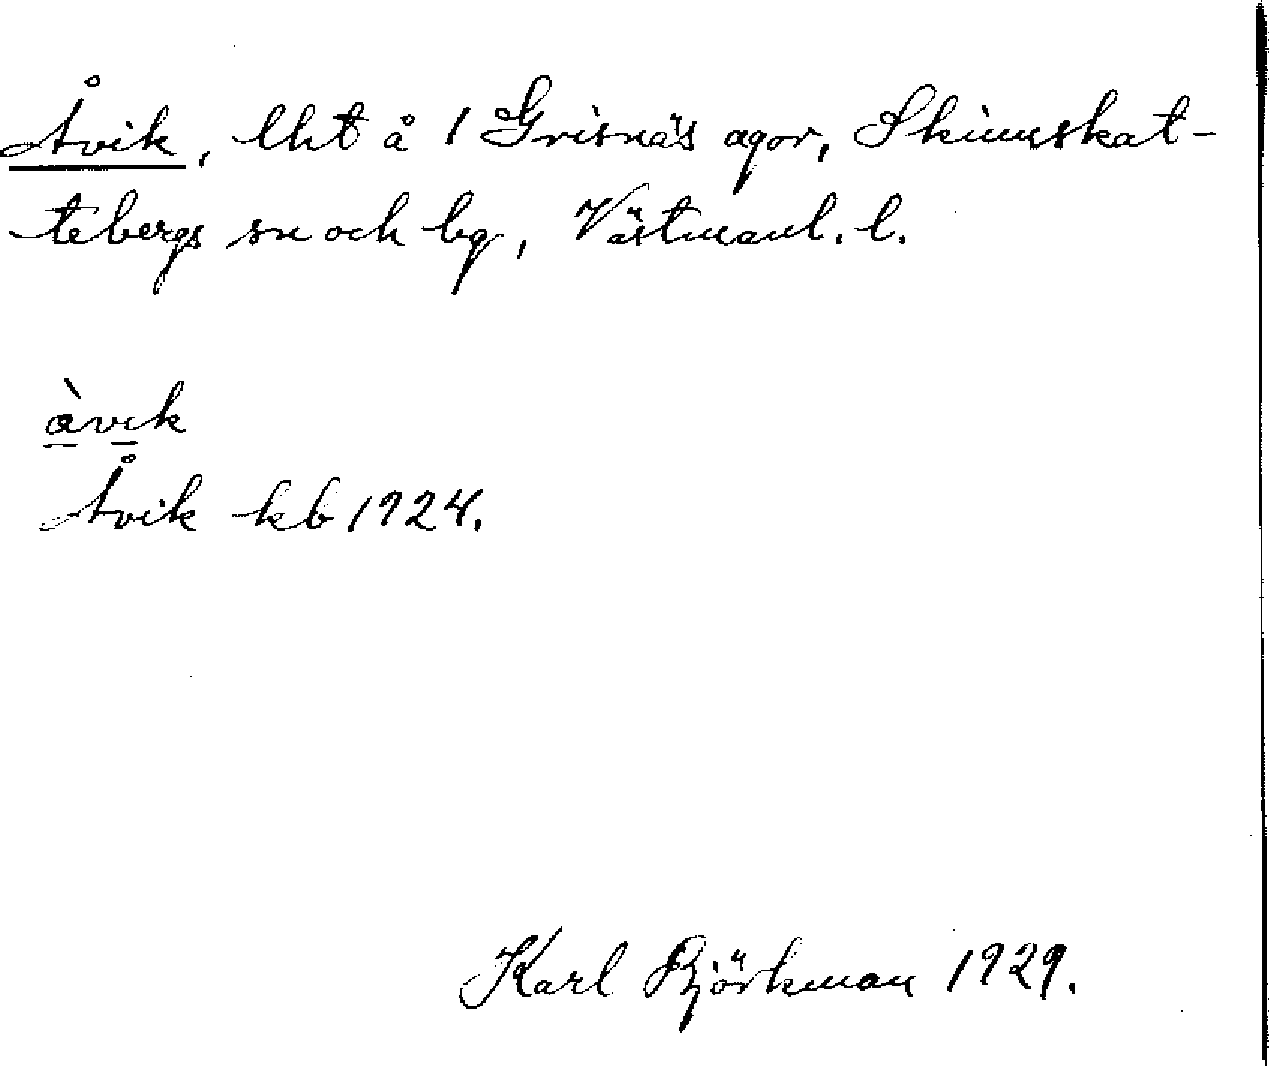 Åvik, lht å 1 Grisnäs ägor, Skinnskat-
tebergs sn och bg, Västmanl. l.
àvik
Åvik kb 1924.
Karl Björkman 1929.